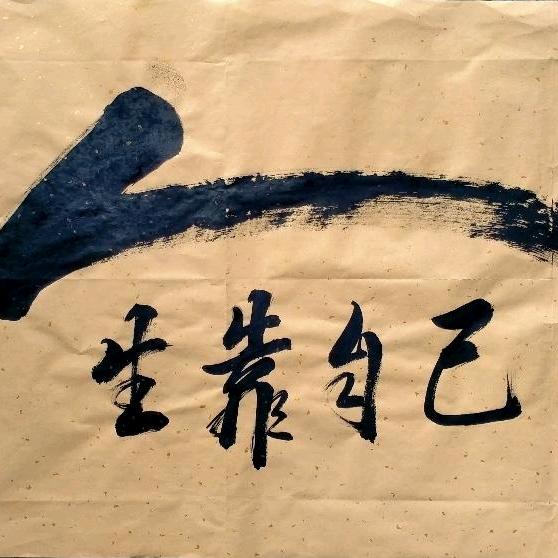 人
生靠自己